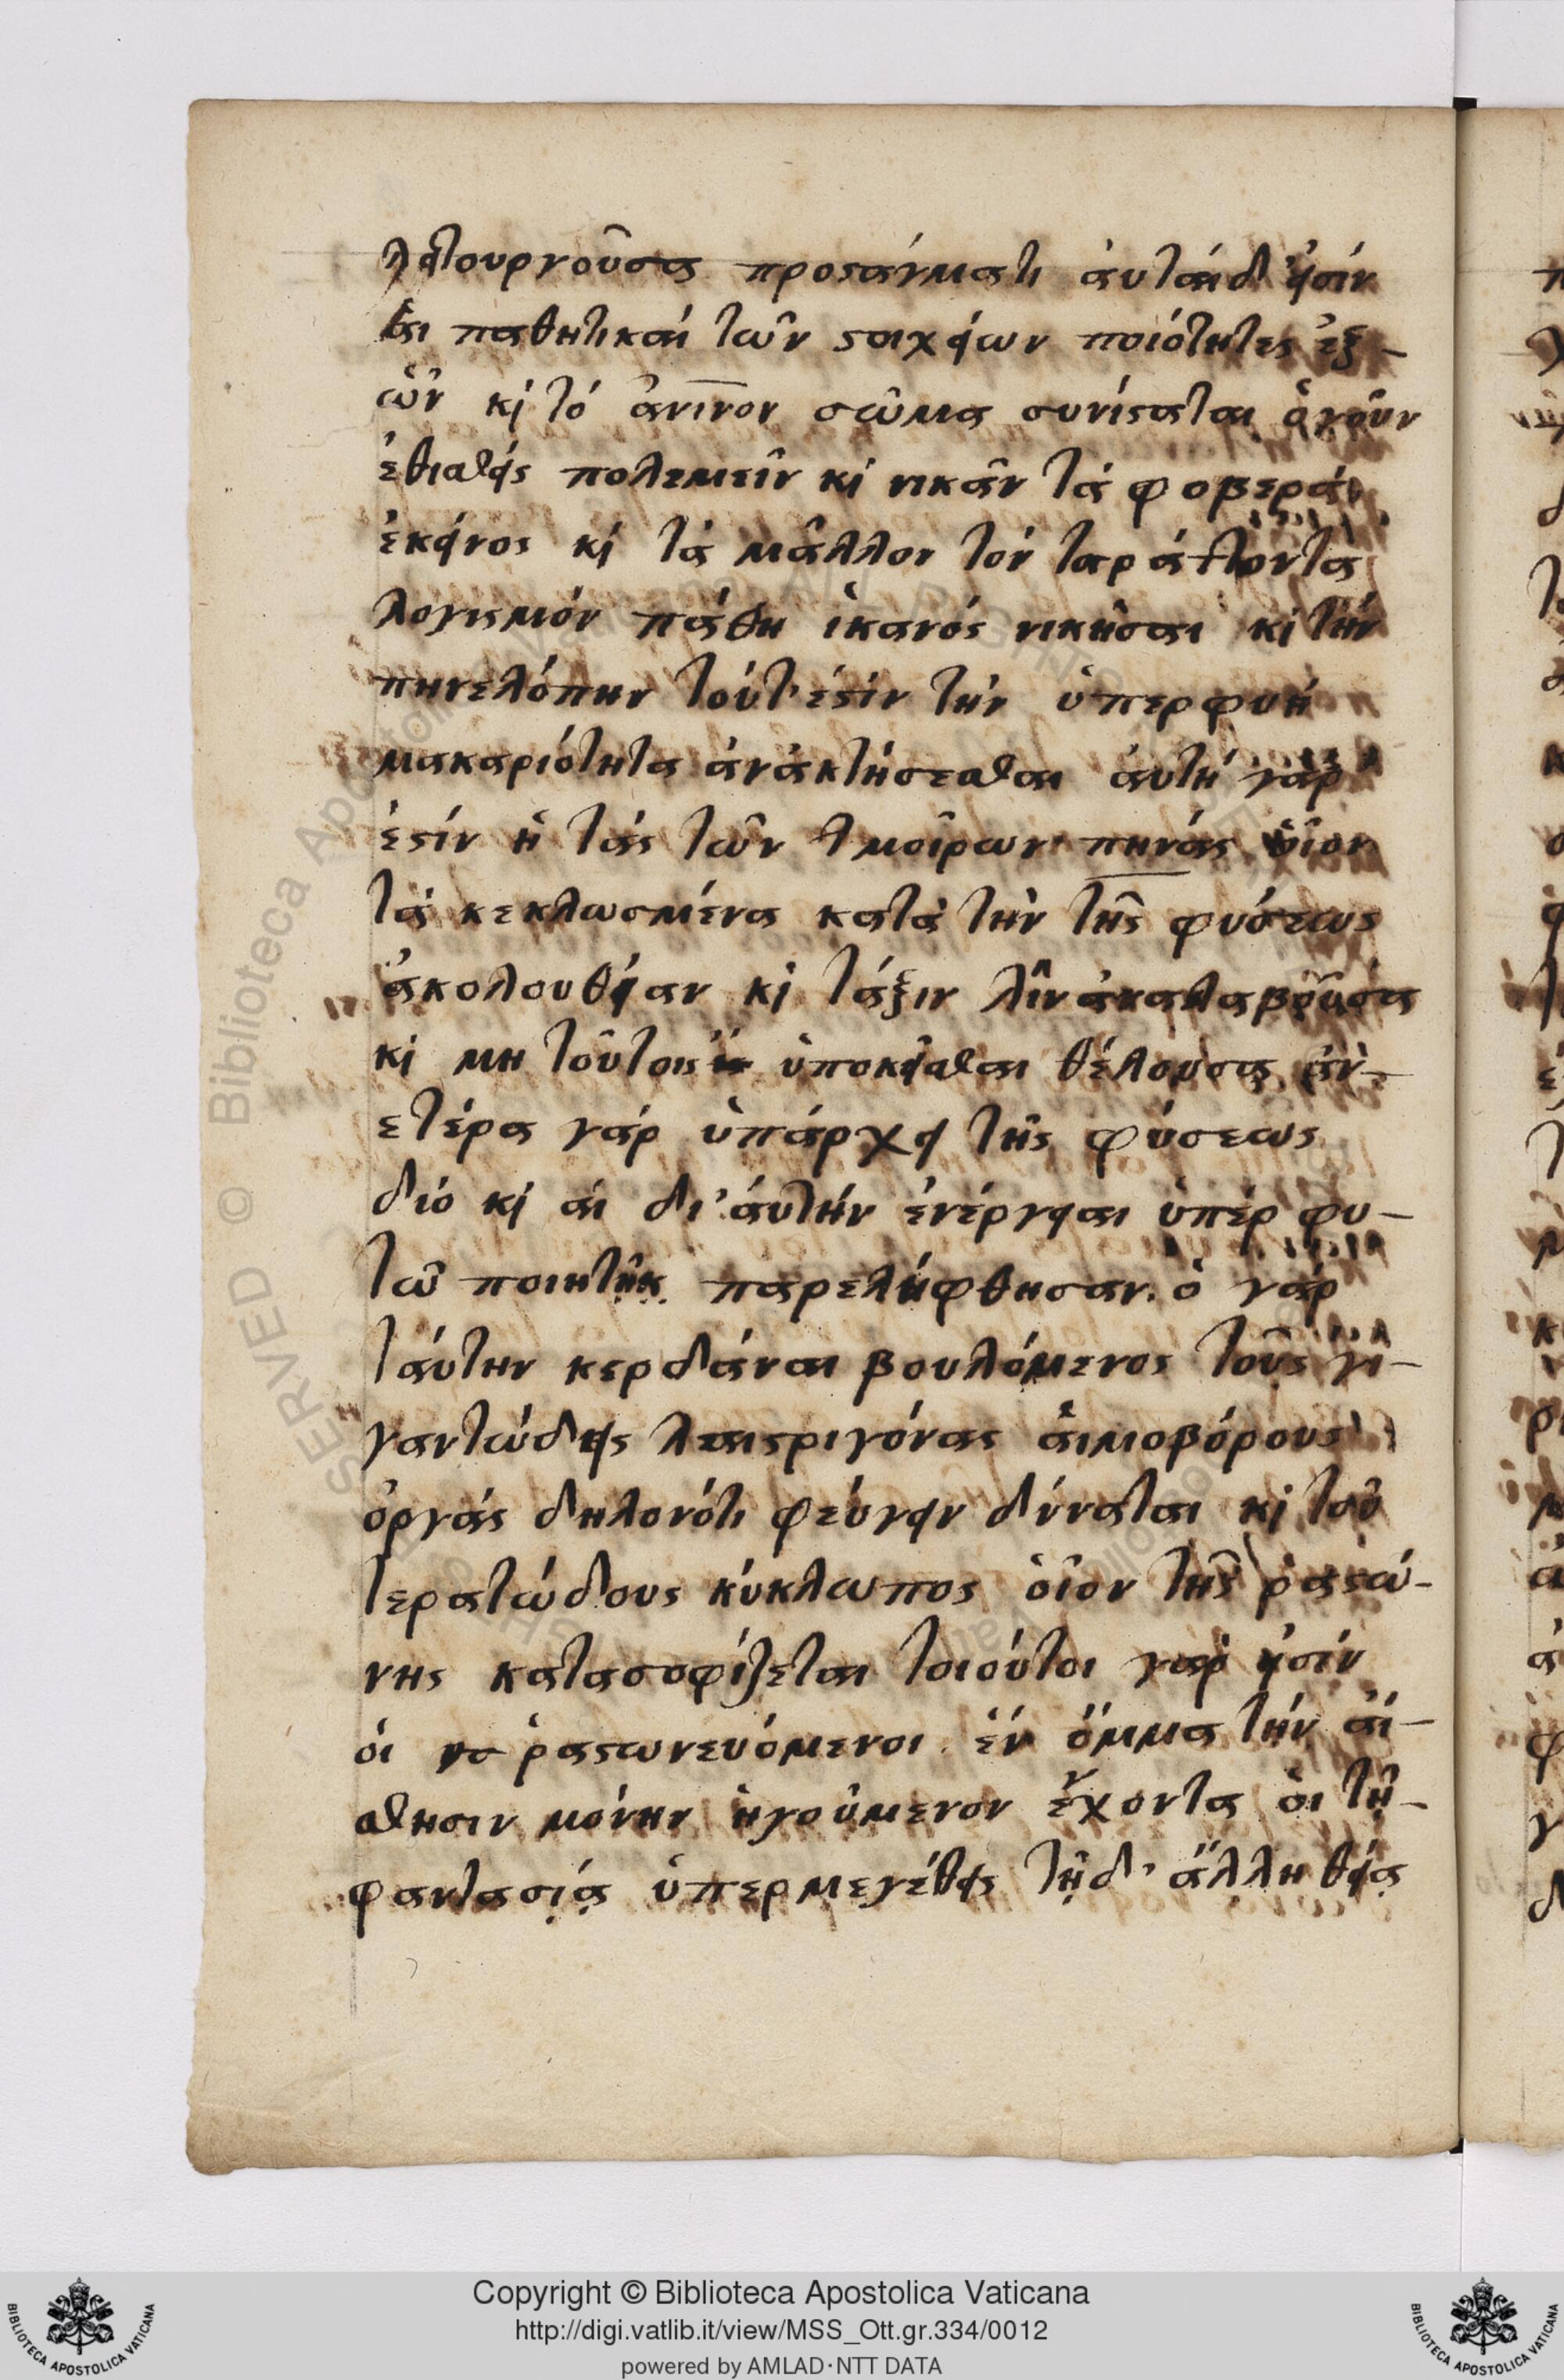 λειτουργοῦσα προστάγματι ἁυτάιδ' ἐισίν
ἁι παθητικαί τῶν στοιχείων ποιότητες ἐξ-
ὧν κὶ τό ἀνινον σῶμα συνίσταται ὁ γοῦν
ἐθισθείς πολεμεῖν κὶ νικᾶν τά φοβερά
ἐκεῖνος κὶ τὰ μᾶλλον τόν ταράττοντα
λογισμόν πάθη ἱκανός νικῆσαι κὶ τήν
πηνελόπην τούτ' ἐστίν τήν ὑπερφυή
μακαριότητα ἀνακτήσεσθαι ἁυτή γὰρ
ἐστίν ἡ τάς τῶν μοῖρων πηνάς ὁῖον
τὰ κεκλωσμένα κατὰ τὴν τῆς φύσεως
ἀκολουθείαν κὶ τάξιν
κὶ μη τοῦτοις ὑποκεῖσθαι θέλουσα
ετέρα γάρ ὑπάρχει τῆς φύσεως
διό κὶ ἁι δι' ἁυτήν ἐνέργειαι ὑπέρ φυ-
τῶ ποιητῇ παρελήφθησαν. ὁ γάρ
ταύτην κερδάναι βουλόμενος τοῦς γι-
γαντώδεις λαιστριγόνας ἁιμοβόρους
ὀργάς δηλονότι φεύγειν δύναται κὶ τοῦ
τερατώδους κύκλωπος ὁῖον τῆς ῥαστώ-
νης κατασοφίζεται τοιούτοι γαρ εἰσίν
ὁι ῥαστωνευόμενοι ἑν ὄμμα τήν ἀι-
σθησιν μόνην ἡγοῦμενον ἔχοντα ὁι τῇ-
φαντασίᾳ ὑπερμεγέθεις τῇδ' ἄλλη θείᾳ
Copyright © Biblioteca Apostolica Vaticana
http://digi.vatlib.it/view/MSS_Ott.gr.334/0012
powered by AMLAD·NTT DATA
BIBLIOTECA APOSTOLICA VATICANA
BIBLIOTECA APOSTOLICA VATICANA